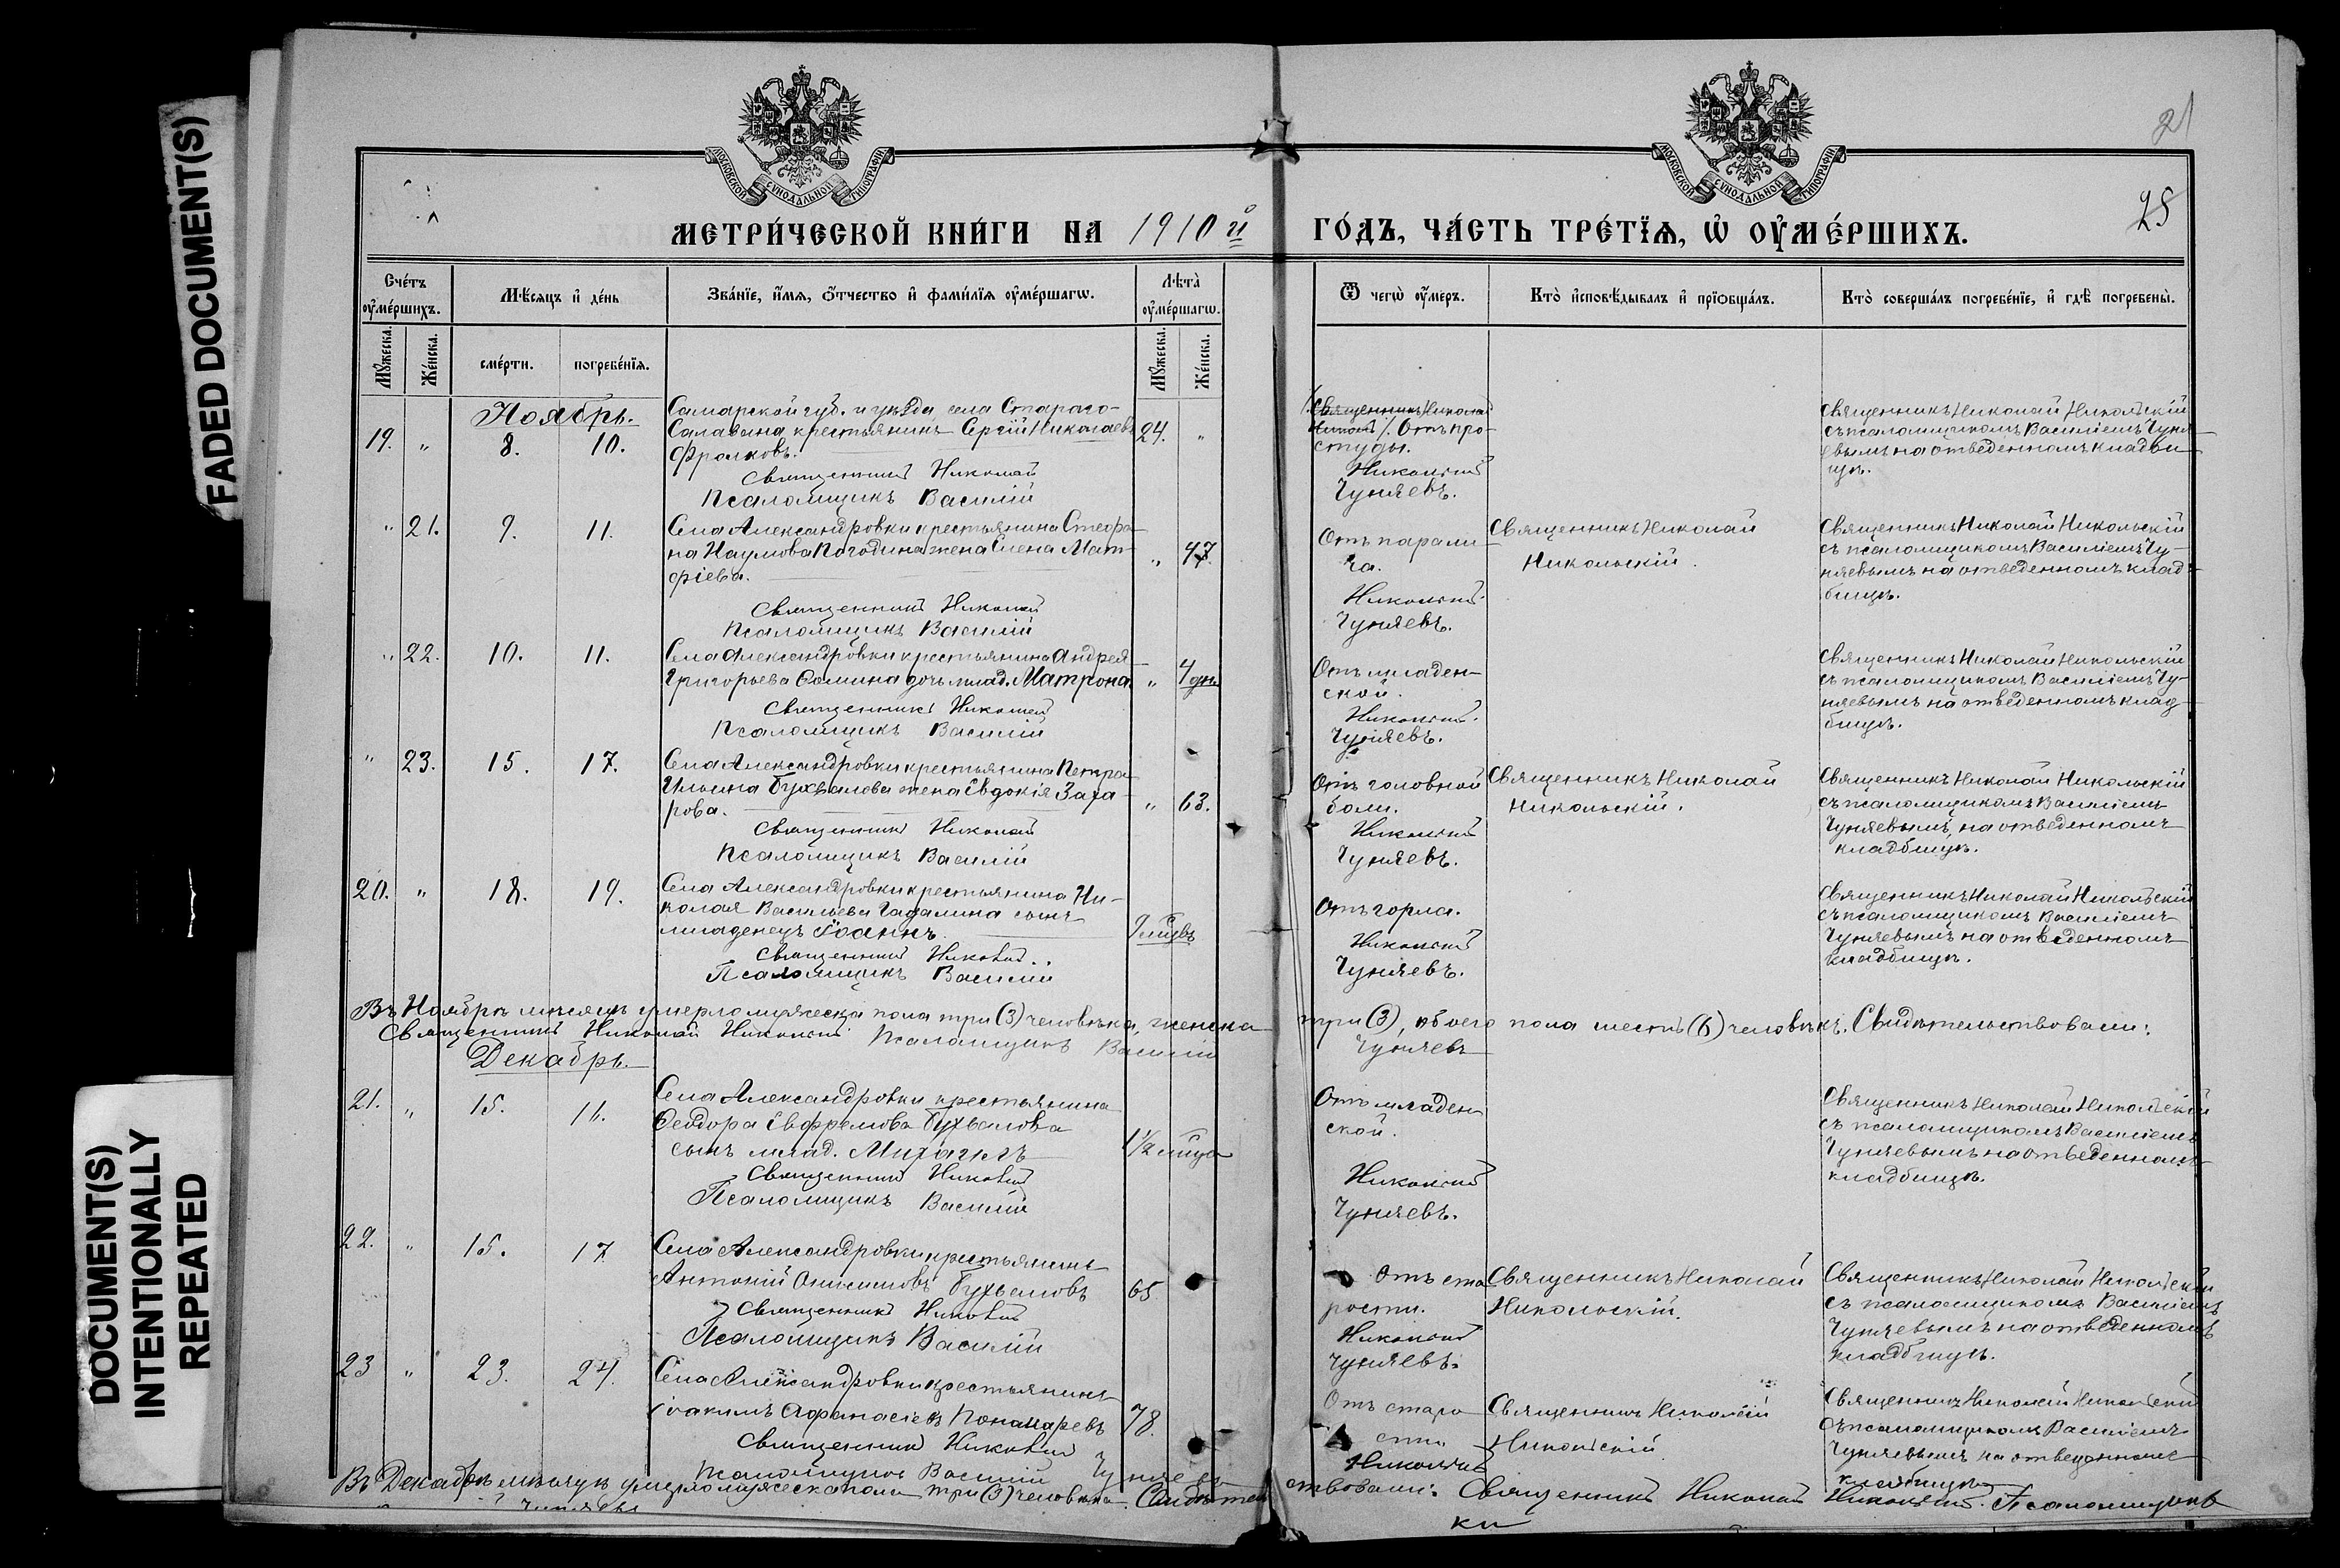 FADED DOCUMENT(S)
DOCUMENT(S)
INTENTIONALLY
REPEATED
МОСКОВСКОЙ СѴНОДАЛЬНОЙ ТИПОГРАФІИ
МОСКОВСКОЙ СѴНОДАЛЬНОЙ ТИПОГРАФІИ
21
25
МЕТРИ́ЧЕСКОЙ КНИ́ГИ НА 1910й
ГО́ДЪ, ЧА́СТЬ ТРЕ́ТЇѦ, Ѡ ОУ҆МЕ́РШИХЪ.
Сче́тъ оу҆ме́ршихъ.
Мꙋ́жеска.
Же́нска.
Мѣ́сѧцъ и҆ де́нь
сме́рти.
погребе́нїѧ.
Зва́нїе, и҆́мѧ, ѻ҆́тчество и҆ фами́лїѧ оу҆ме́ршагѡ.
Лѣ́та̀ оу҆ме́ршагѡ.
Мꙋ́жеска.
Же́нска.
Ѿ чегѡ̀ оу҆́меръ.
Кто̀ и҆сповѣ́дывалъ и҆ прїѻбща́лъ.
Кто̀ соверша́лъ погребе́нїе, и҆ гдѣ̀ погребены̀.
Ноябрь.
19. " 8. 10.
Самарской губ. и уѣзда села Стараго-
Салавана крестьянинъ Сергій Николаевъ 24. "
Фролковъ.
Священникъ Николай
Псаломщикъ Василій
Священникъ Николай
Отъ про-
студы.
Никольскій
Чуняевъ.
Священникъ Николай Никольскій
съ псаломщикомъ Василіемъ Чуня-
евымъ на отведенномъ кладби-
щѣ.
" 21. 9. 11.
Села Александровки крестьянина Стефа-
на Наумова Погодина жена Елена Мат- " 47.
фіева.
Священникъ Николай
Псаломщикъ Василій
Отъ парали-
ча.
Никольскій
Чуняевъ.
Священникъ Николай
Никольскій.
Священникъ Николай Никольскій
съ псаломщикомъ Василіемъ Чу-
няевымъ на отведенномъ клад-
бищѣ.
" 22. 10. 11.
Села Александровки крестьянина Андрея
Григорьева Сомина дочь млад. Матрона " 4 дн.
Священникъ Николай
Псаломщикъ Василій
Отъ младен-
ской.
Никольскій.
Чуняевъ.
Священникъ Николай Никольскій
съ псаломщикомъ Василіемъ Чу-
няевымъ на отведенномъ клад-
бищѣ.
" 23. 15. 17.
Села Александровки крестьянина Петра
Ильина Бухвалова жена Евдокія Заха- " 63.
рова.
Священникъ Николай
Псаломщикъ Василій
Отъ головной
боли.
Никольскій
Чуняевъ.
Священникъ Николай
Никольскій.
Священникъ Николай Никольскій
съ псаломщикомъ Василіемъ
Чуняевымъ, на отведенномъ
кладбищѣ.
20. " 18. 19.
Села Александровки крестьянина Ни-
колая Васильева сынъ
младенецъ Іоаннъ 9 мцвъ
Священникъ Николай
Псаломщикъ Василій
Отъ горла.
Никольскій
Чуняевъ.
Священникъ Николай Никольскій
съ псаломщикомъ Василіемъ
Чуняевымъ на отведенномъ
кладбищѣ.
Въ Ноябрѣ мѣсяцѣ умерло мужеска пола три (3) человѣка, женска три (3), обоего пола шесть (6) человѣкъ. Свидѣтельствовали:
Священникъ Николай Никольскій Псаломщикъ Василій Чуняевъ
Декабрь
21. " 15. 16.
Села Александровки крестьянина
Феодора Евфремова Бухвалова
сынъ млад. Михаилъ 1 1/2 мцца
Священникъ Николай
Псаломщикъ Василій
Отъ младен
ской.
Никольскій
Чуняевъ.
Священникъ Николай Никольскій
съ псаломщикомъ Василіемъ
Чуняевымъ на отведенномъ
кладбищѣ.
22. " 15. 17
Села Александровки крестьянинъ
Антоній Онисимовъ Бухваловъ 65
Священникъ Николай
Псаломщикъ Василій
Отъ ста
рости.
Никольскій
Чуняевъ.
Священникъ Николай
Никольскій.
Священникъ Николай Никольскій
съ псаломщикомъ Василіемъ
Чуняевымъ на отведенномъ
кладбищѣ.
23 " 23. 24.
Села Александровки крестьянинъ
Іоакимъ Афанасіевъ Понамаревъ 78.
Священникъ Николай
Псаломщикъ Василій Чуняевъ
Отъ старо
сти
Никольскій
Священникъ Николай
Никольскій
Священникъ Николай Никольскій
съ псаломщикомъ Василіемъ
Чуняевымъ на отведенномъ
кладбищѣ
Въ Декабрѣ мѣсяцѣ умерло мужеска пола три (3) человѣка. Свидѣтельствовали: Священникъ Николай Никольскій. Псаломщикъ
Чуняевъ